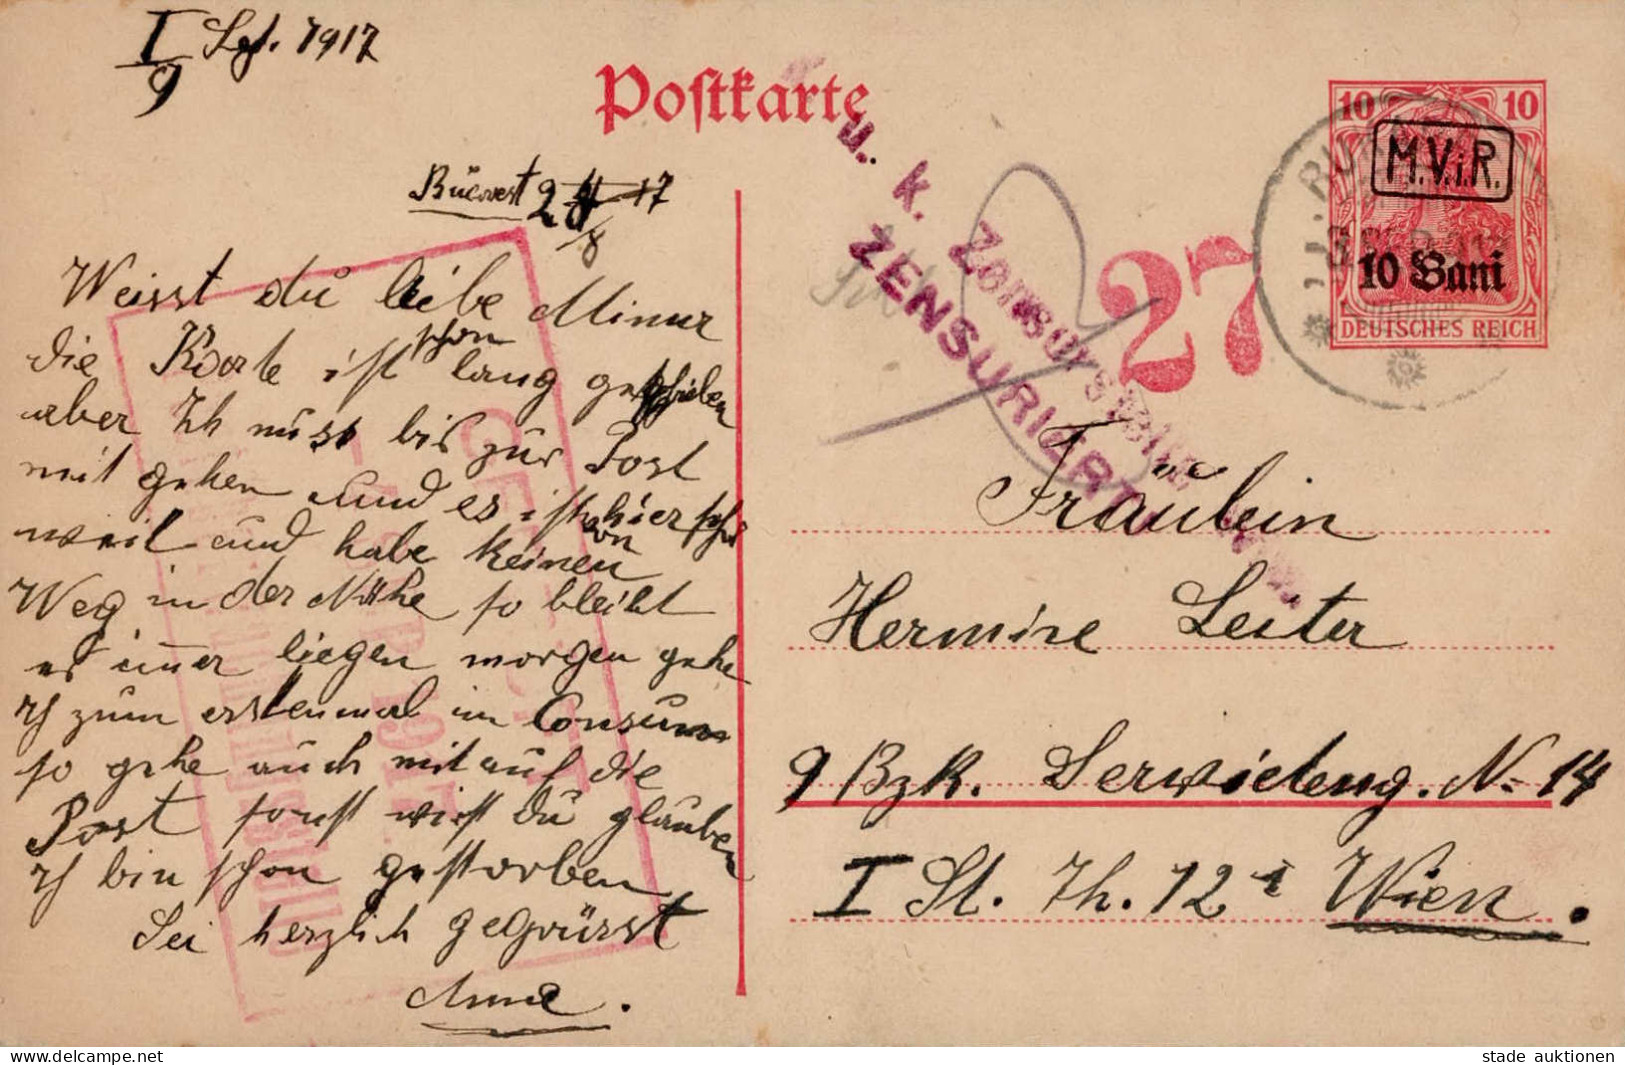 I/9 Sept. 1917
Postkarte
10 10
M.V.i.R.
10 Bani
DEUTSCHES REICH
27
u. k. Zensurstelle
ZENSURIERT
Bucurest 28/8 17
Weisst du liebe Minur
die Karte ist schon lang geschrieben
aber Ich muss bis zur Post
mit gehen und es ist hier schon
weil und habe keinen
Weg in der Nähe so bleibt
es immer liegen morgen gehe
ich zum erstenmal im Consum
so gehe auch mit auf die
Post sonst wirst Du glauben
ich bin schon gestorben
Sei herzlich gegrüsst
Anna.
Fräulein
Hermine Leiter
9 Bzk. Serwieteng. N= 14
I St. Th. 12
Wien.
stade auktionen